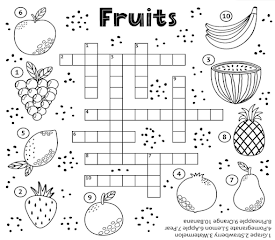 Fruits
6
10
1
3
5
8
2
7
10
1.Grape 2.Strawberry 3.Watermelon
4.Pomegranate 5.Lemon 6.Apple 7.Pear
8.Pineapple 9.Orange 10.Banana